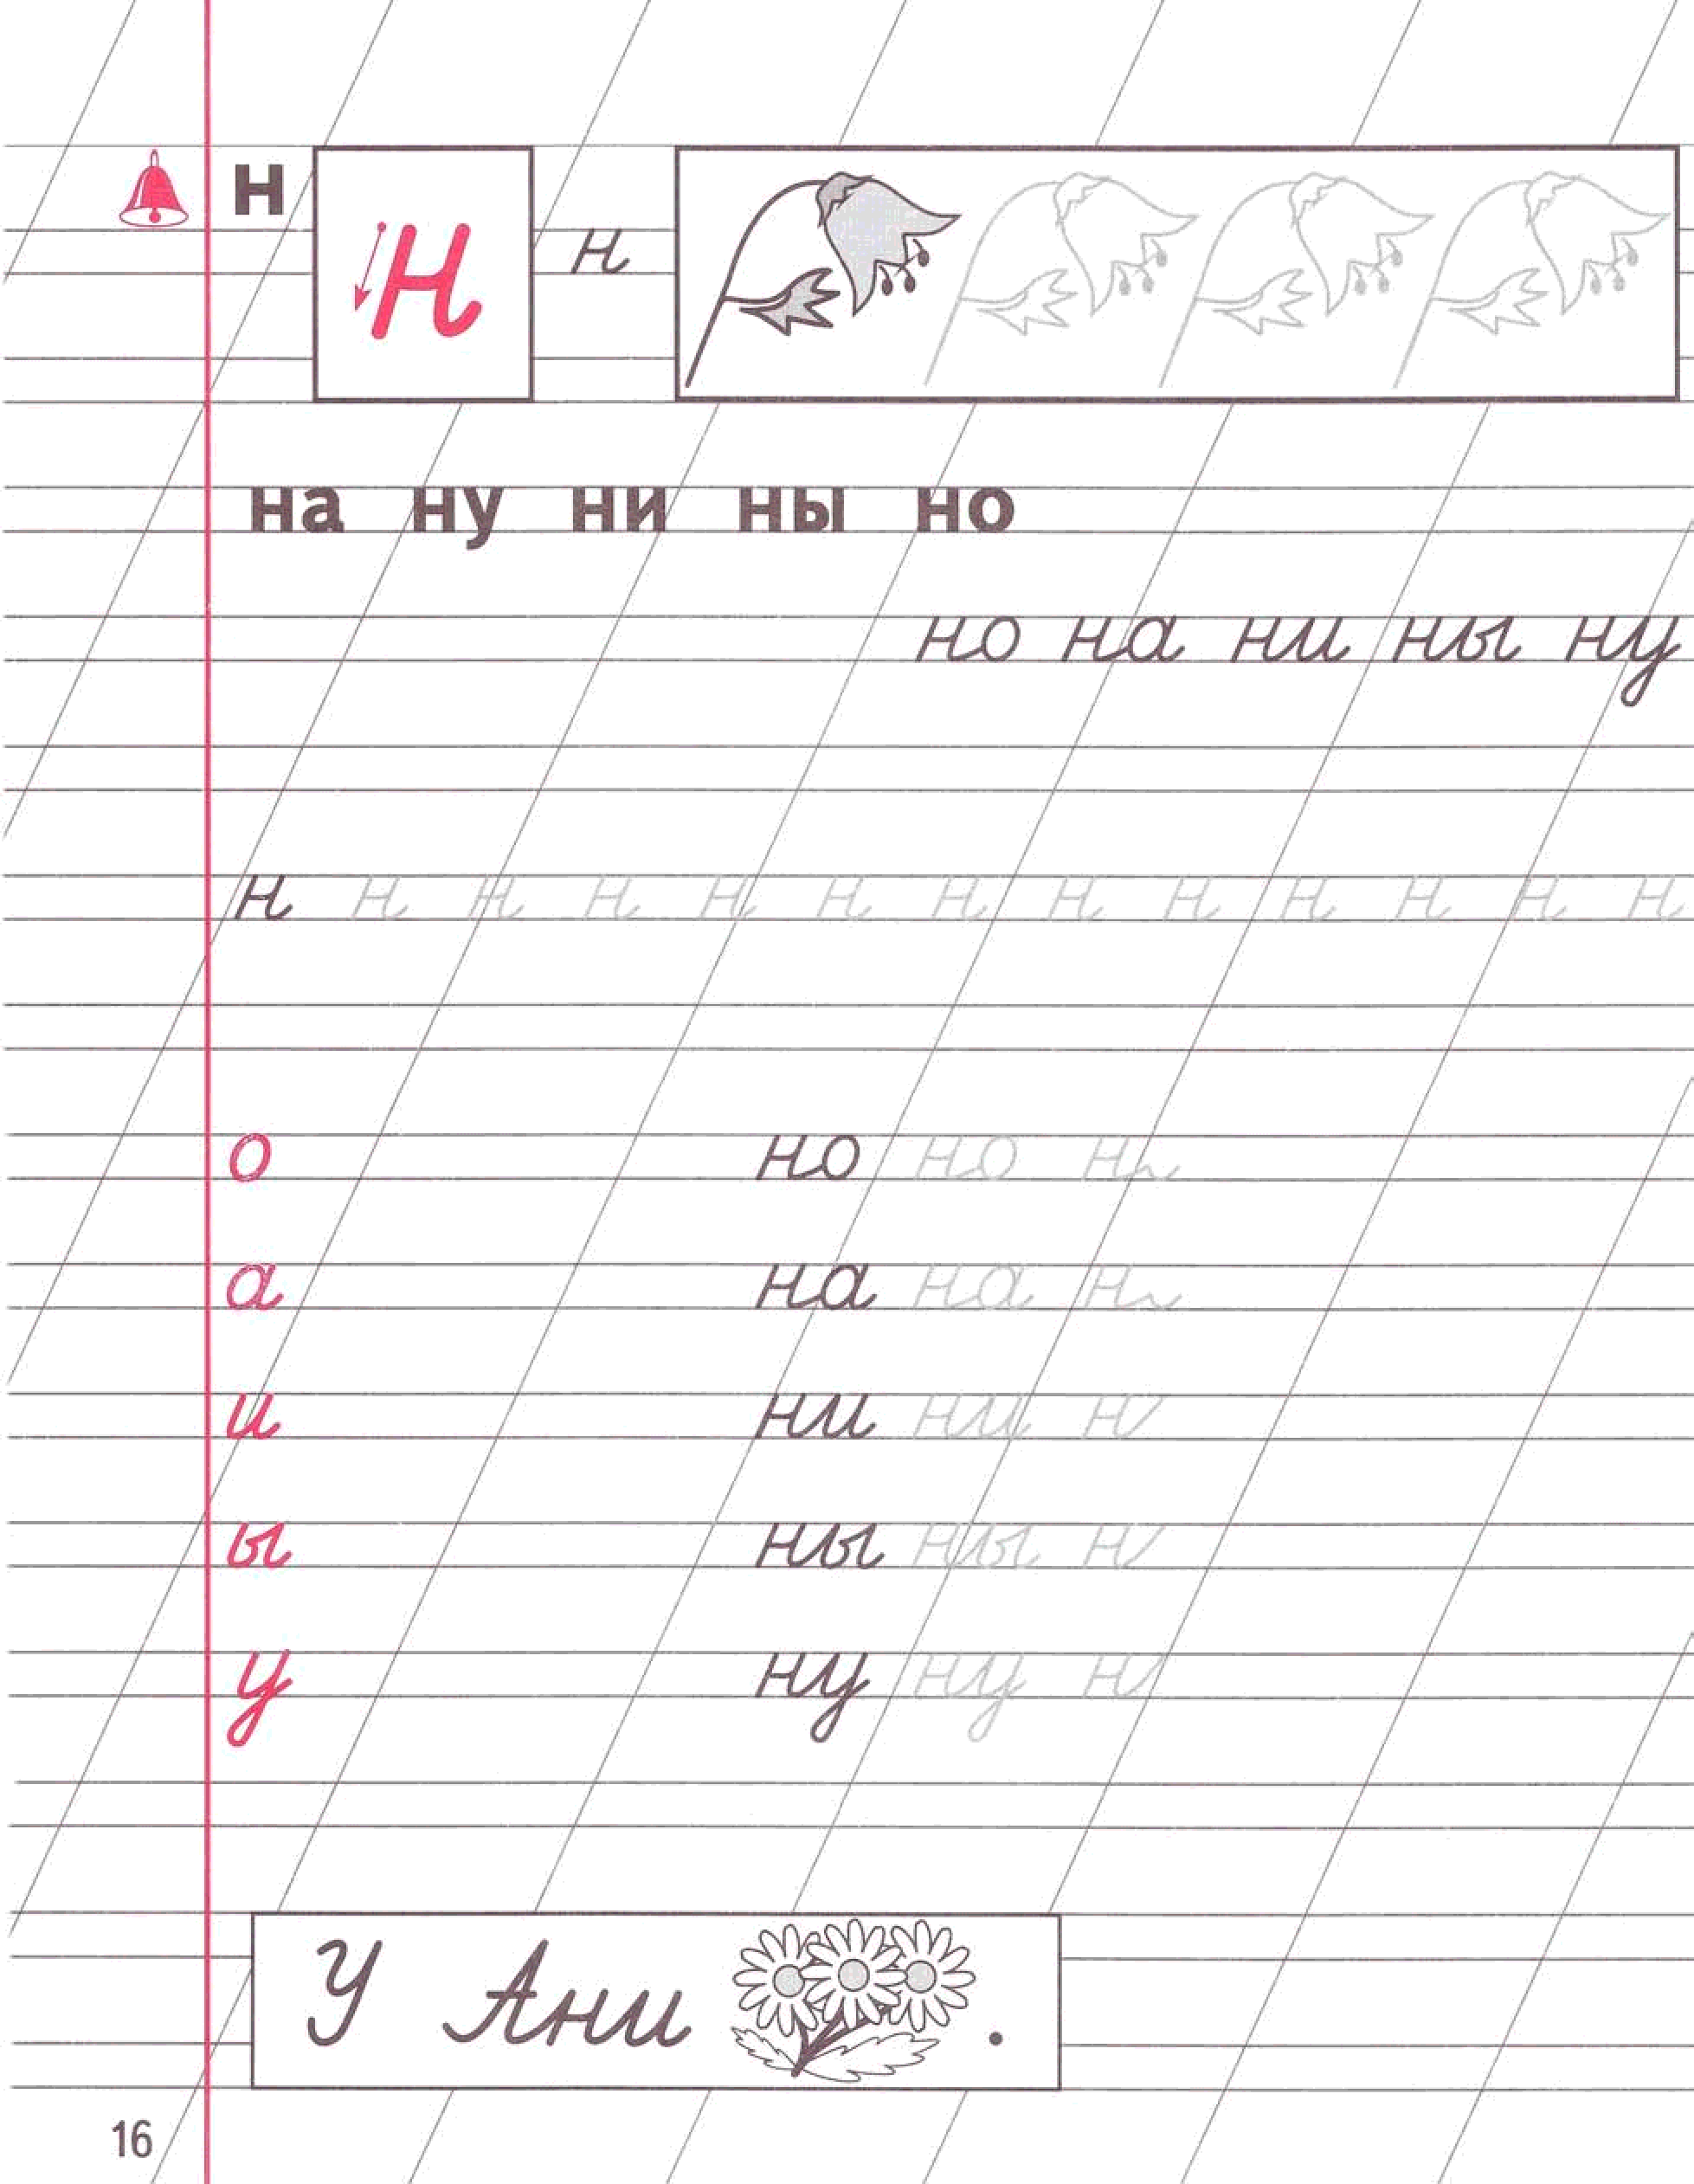 н Н н
на ну ни ны но
но на ни ны ну
н н н н н н н н н н н н н
о но но н
а на на н
и ни ни н
ы ны ны н
у ну ну н
У Ани .
16